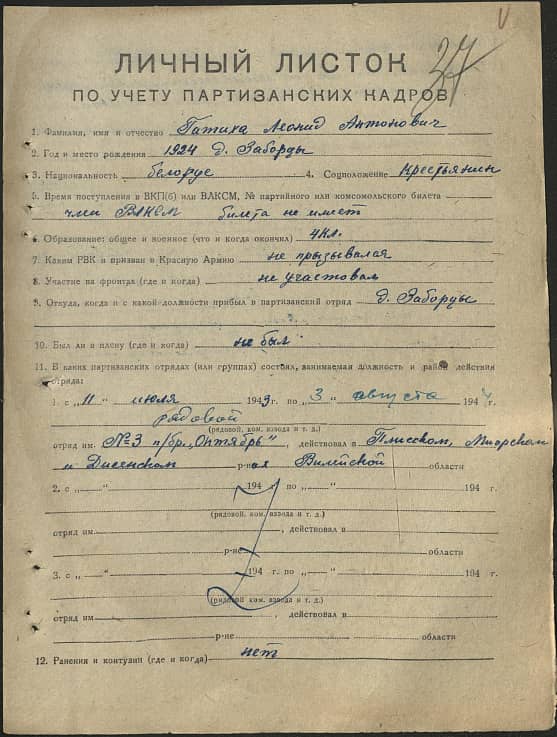 37
V
ЛИЧНЫЙ ЛИСТОК
ПО УЧЕТУ ПАРТИЗАНСКИХ КАДРОВ
1. Фамилия, имя и отчество Гатика Леонид Антонович
2. Год и место рождения 1924 д. Заборцы
3. Национальность белорус 4. Соцположение Крестьянин
5. Время поступления в ВКП(б) или ВЛКСМ, № партийного или комсомольского билета
член ВЛКСМ билета не имеет
6. Образование: общее и военное (что и когда окончил) 4кл.
7. Каким РВК и призван в Красную Армию не прызывался
8. Участие на фронтах (где и когда) не участовал
9. Откуда, когда и с какой должности прибыл в партизанский отряд д. Заборцы
10. Был ли в плену (где и когда) не был
11. В каких партизанских отрядах (или группах) состоял, занимаемая должность и район действия
отряда:
1. с „11" июля 1943 г. по „3" августа 1944 г.
рядовой
(рядовой, ком. взвода и т. д.)
отряд им. №3 п/бр. „Октябрь", действовал в Плисском, Миорском
и Дисенском р-не Вилейской области
2. с „—" 194 г. по „—" 194 г.
(рядовой, ком. взвода и т. д.)
отряд им. , действовал в
р-не области
3. с „—" 194 г. по „—" 194 г.
(рядовой, ком. взвода и т. д.)
отряд им. , действовал в
р-не области
12. Ранения и контузии (где и когда) нет